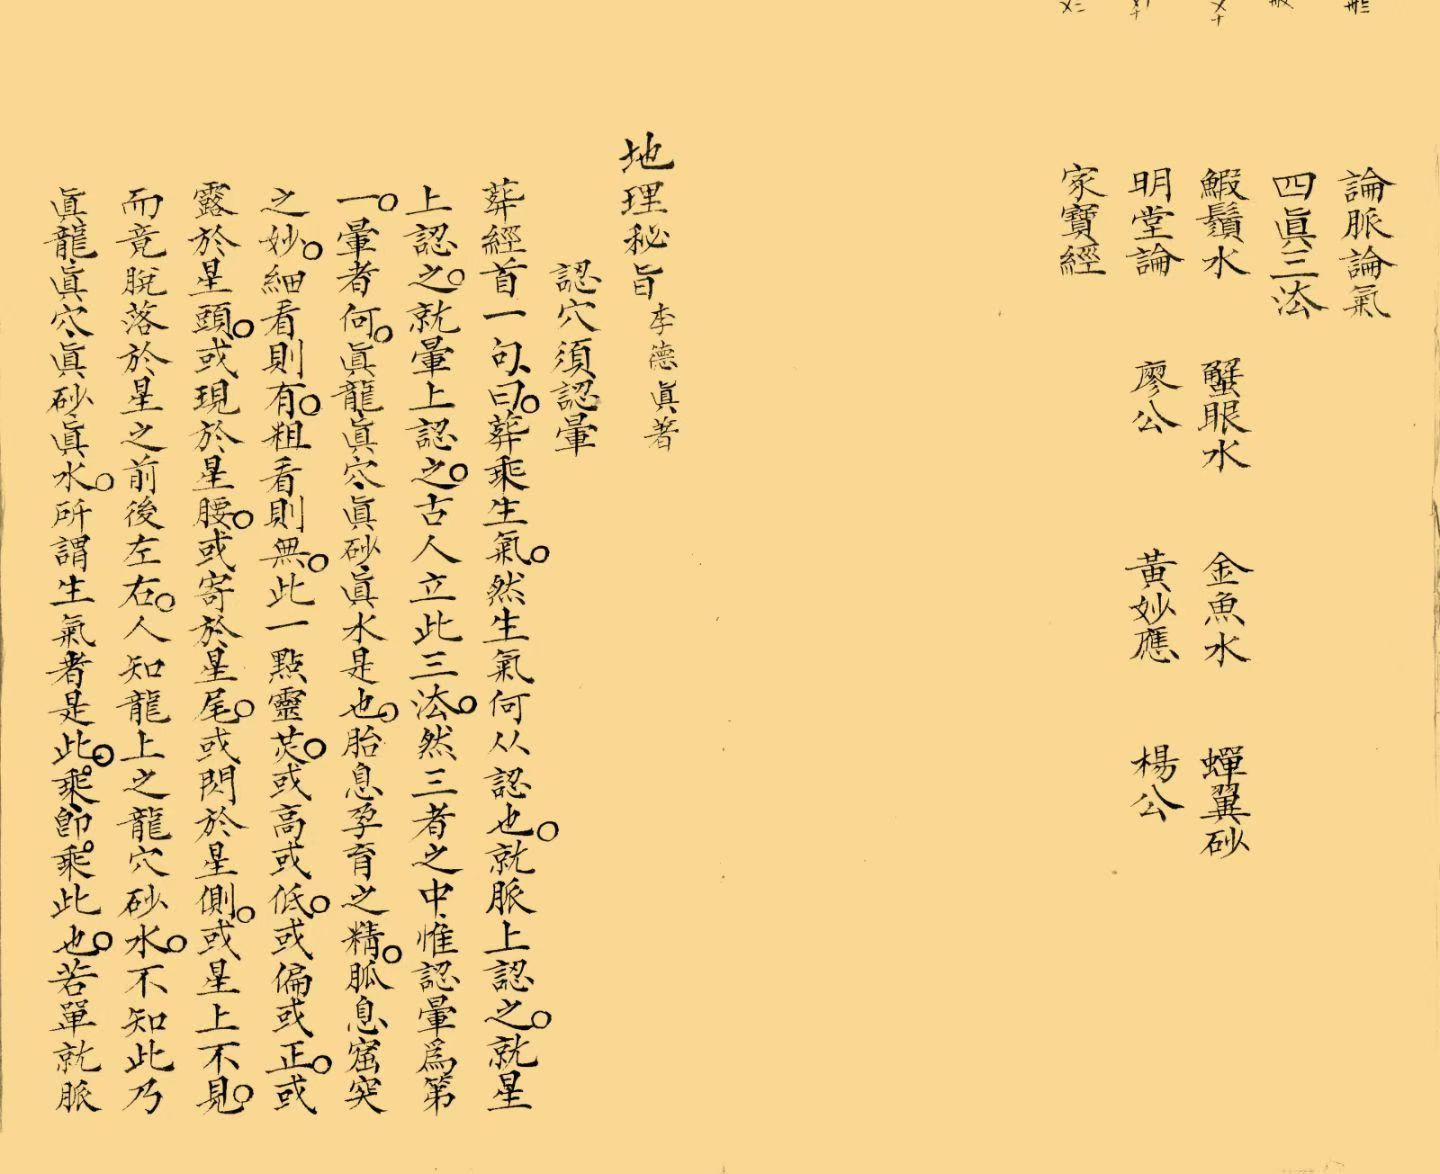 論脈論氣
四眞三法
鰕鬚水　蟹眼水　金魚水　蟬翼砂
明堂論　廖公　黃妙應　楊公
家寶經
地理秘旨 李德眞著
認穴須認暈
葬經首一句曰。葬乘生氣。然生氣何从認也。就脈上認之。就星
上認之。就暈上認之。古人立此三法。然三者之中惟認暈爲第
一。暈者何。眞龍眞穴眞砂眞水是也。胎息孕育之精。胍息窟突
之妙。細看則有。粗看則無。此一點靈芡。或高或低。或偏或正。或
露於星頭。或現於星腰。或寄於星尾。或閃於星側。或星上不見。
而竟脫落於星之前後左右。人知龍上之龍穴砂水。不知此乃
眞龍眞穴眞砂眞水。所謂生氣者是此。乘即乘此也。若單就脈